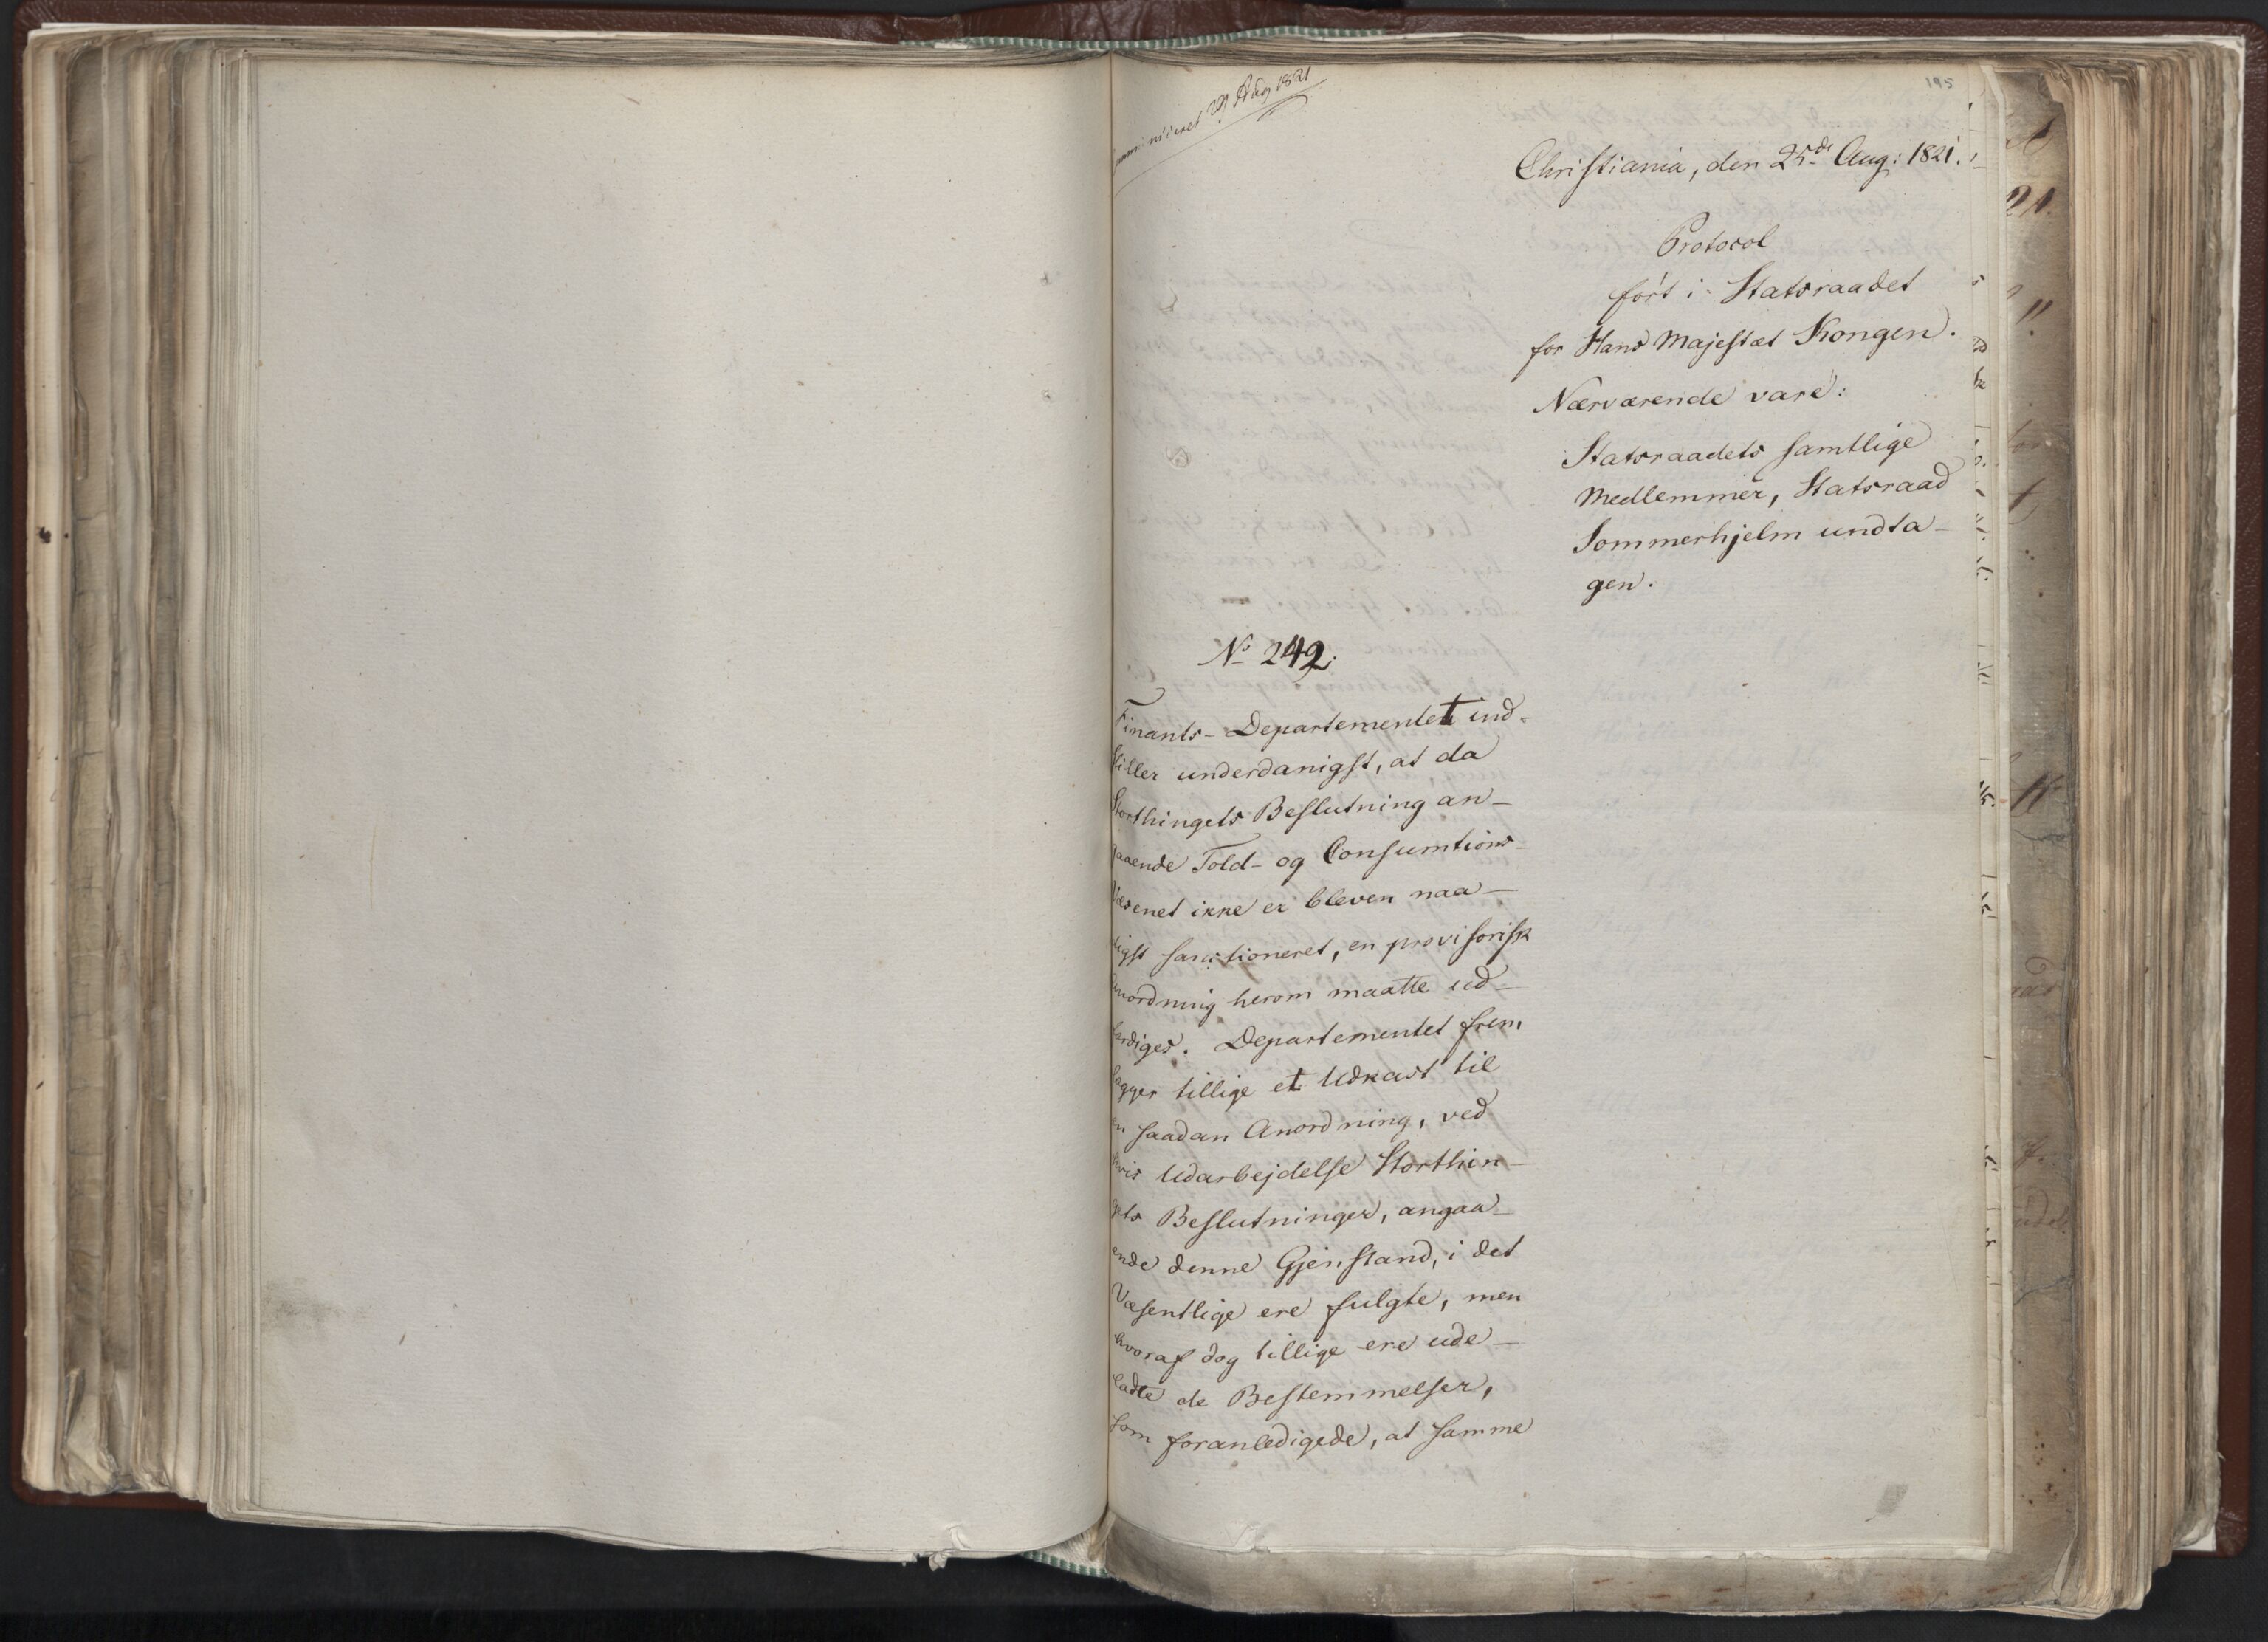 29 Aug 1821
195
Christiania, den 25de Aug: 1821.
Protocol
ført i Statsraadet
for Hans Majestæt Kongen.
Nærværende vare:
Statsraadets samtlige
Medlemmer, Statsraad
Sommerhjelm undta-
gen.
No 242.
Finants-Departementet ind-
stiller underdanigst, at da
Storthingets Beslutning an-
gaaende Told- og Consumtions-
Væsenet ikke er bleven naa-
digst sanctioneret, en provisorisk
Anordning herom maatte ud-
færdiges. Departementet frem
lægger tillige et Udkast til
en saadan Anordning, ved
hvis Udarbejdelse Storthin-
gets Beslutninger, angaa-
ende denne Gjenstand, i det
Væsentlige ere fulgte, men
hvoraf dog tillige ere ude-
ladte de Bestemmelser,
som foranledigede, at samme